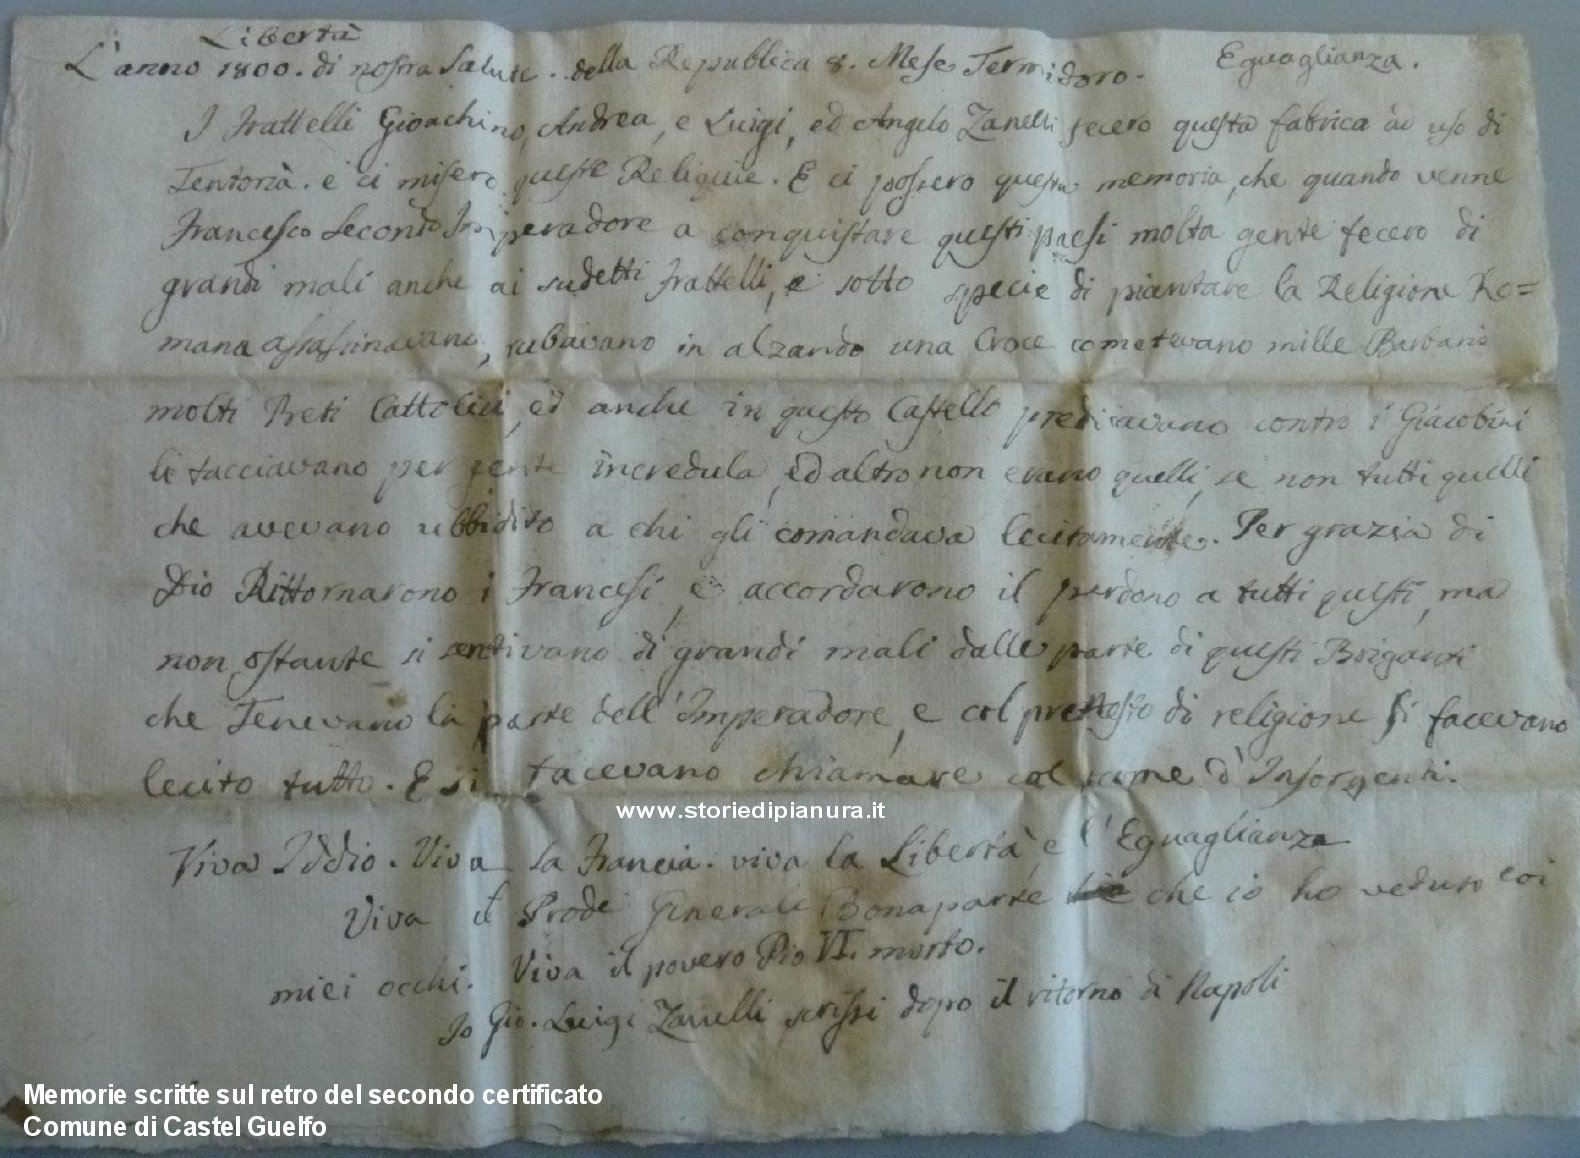 Libertà Eguaglianza.
L'anno 1800. di nostra Salute. della Republica 8. Mese Termidoro.
I Frattelli Gioachino, Andrea, e Luigi, ed Angelo Zanelli fecero questa fabrica ad uso di
Tentoria. e ci misero queste Reliquie. E ci possero questa memoria, che quando venne
Francesco Secondo Imperadore a conquistare questi paesi molta gente fecero di
grandi mali anche ai sudetti frattelli, e sotto specie di piantare la Religione Ro=
mana assassinavano, rubavano in alzando una Croce cometevano mille Barbarie
molti Preti Cattolici, ed anche in questo Castello predicavano contro i Giacobini
li tacciavano per gente incredula, ed altro non erano quelli, se non tutti quelli
che avevano ubbidito a chi gli comandava lecitamente. Per grazia di
Dio Rittornarono i Francesi, e accordarono il perdono a tutti questi, ma
non ostante si sentivano di grandi mali dalle parte di questi Briganti
che Tenevano la parte dell'Imperadore, e col pretesto di religione si facevano
lecito tutto. E si facevano chiamare col nome d'Insorgenti.
www.storiedipianura.it
Viva Iddio. Viva la Francia. viva la Libertà, e l'Eguaglianza
Viva il Prode Generale Bonaparte che io ho veduto coi
miei occhi. Viva il povero Pio VI. morto.
Io Gio. Luigi Zanelli scrissi dopo il ritorno di Napoli
Memorie scritte sul retro del secondo certificato
Comune di Castel Guelfo